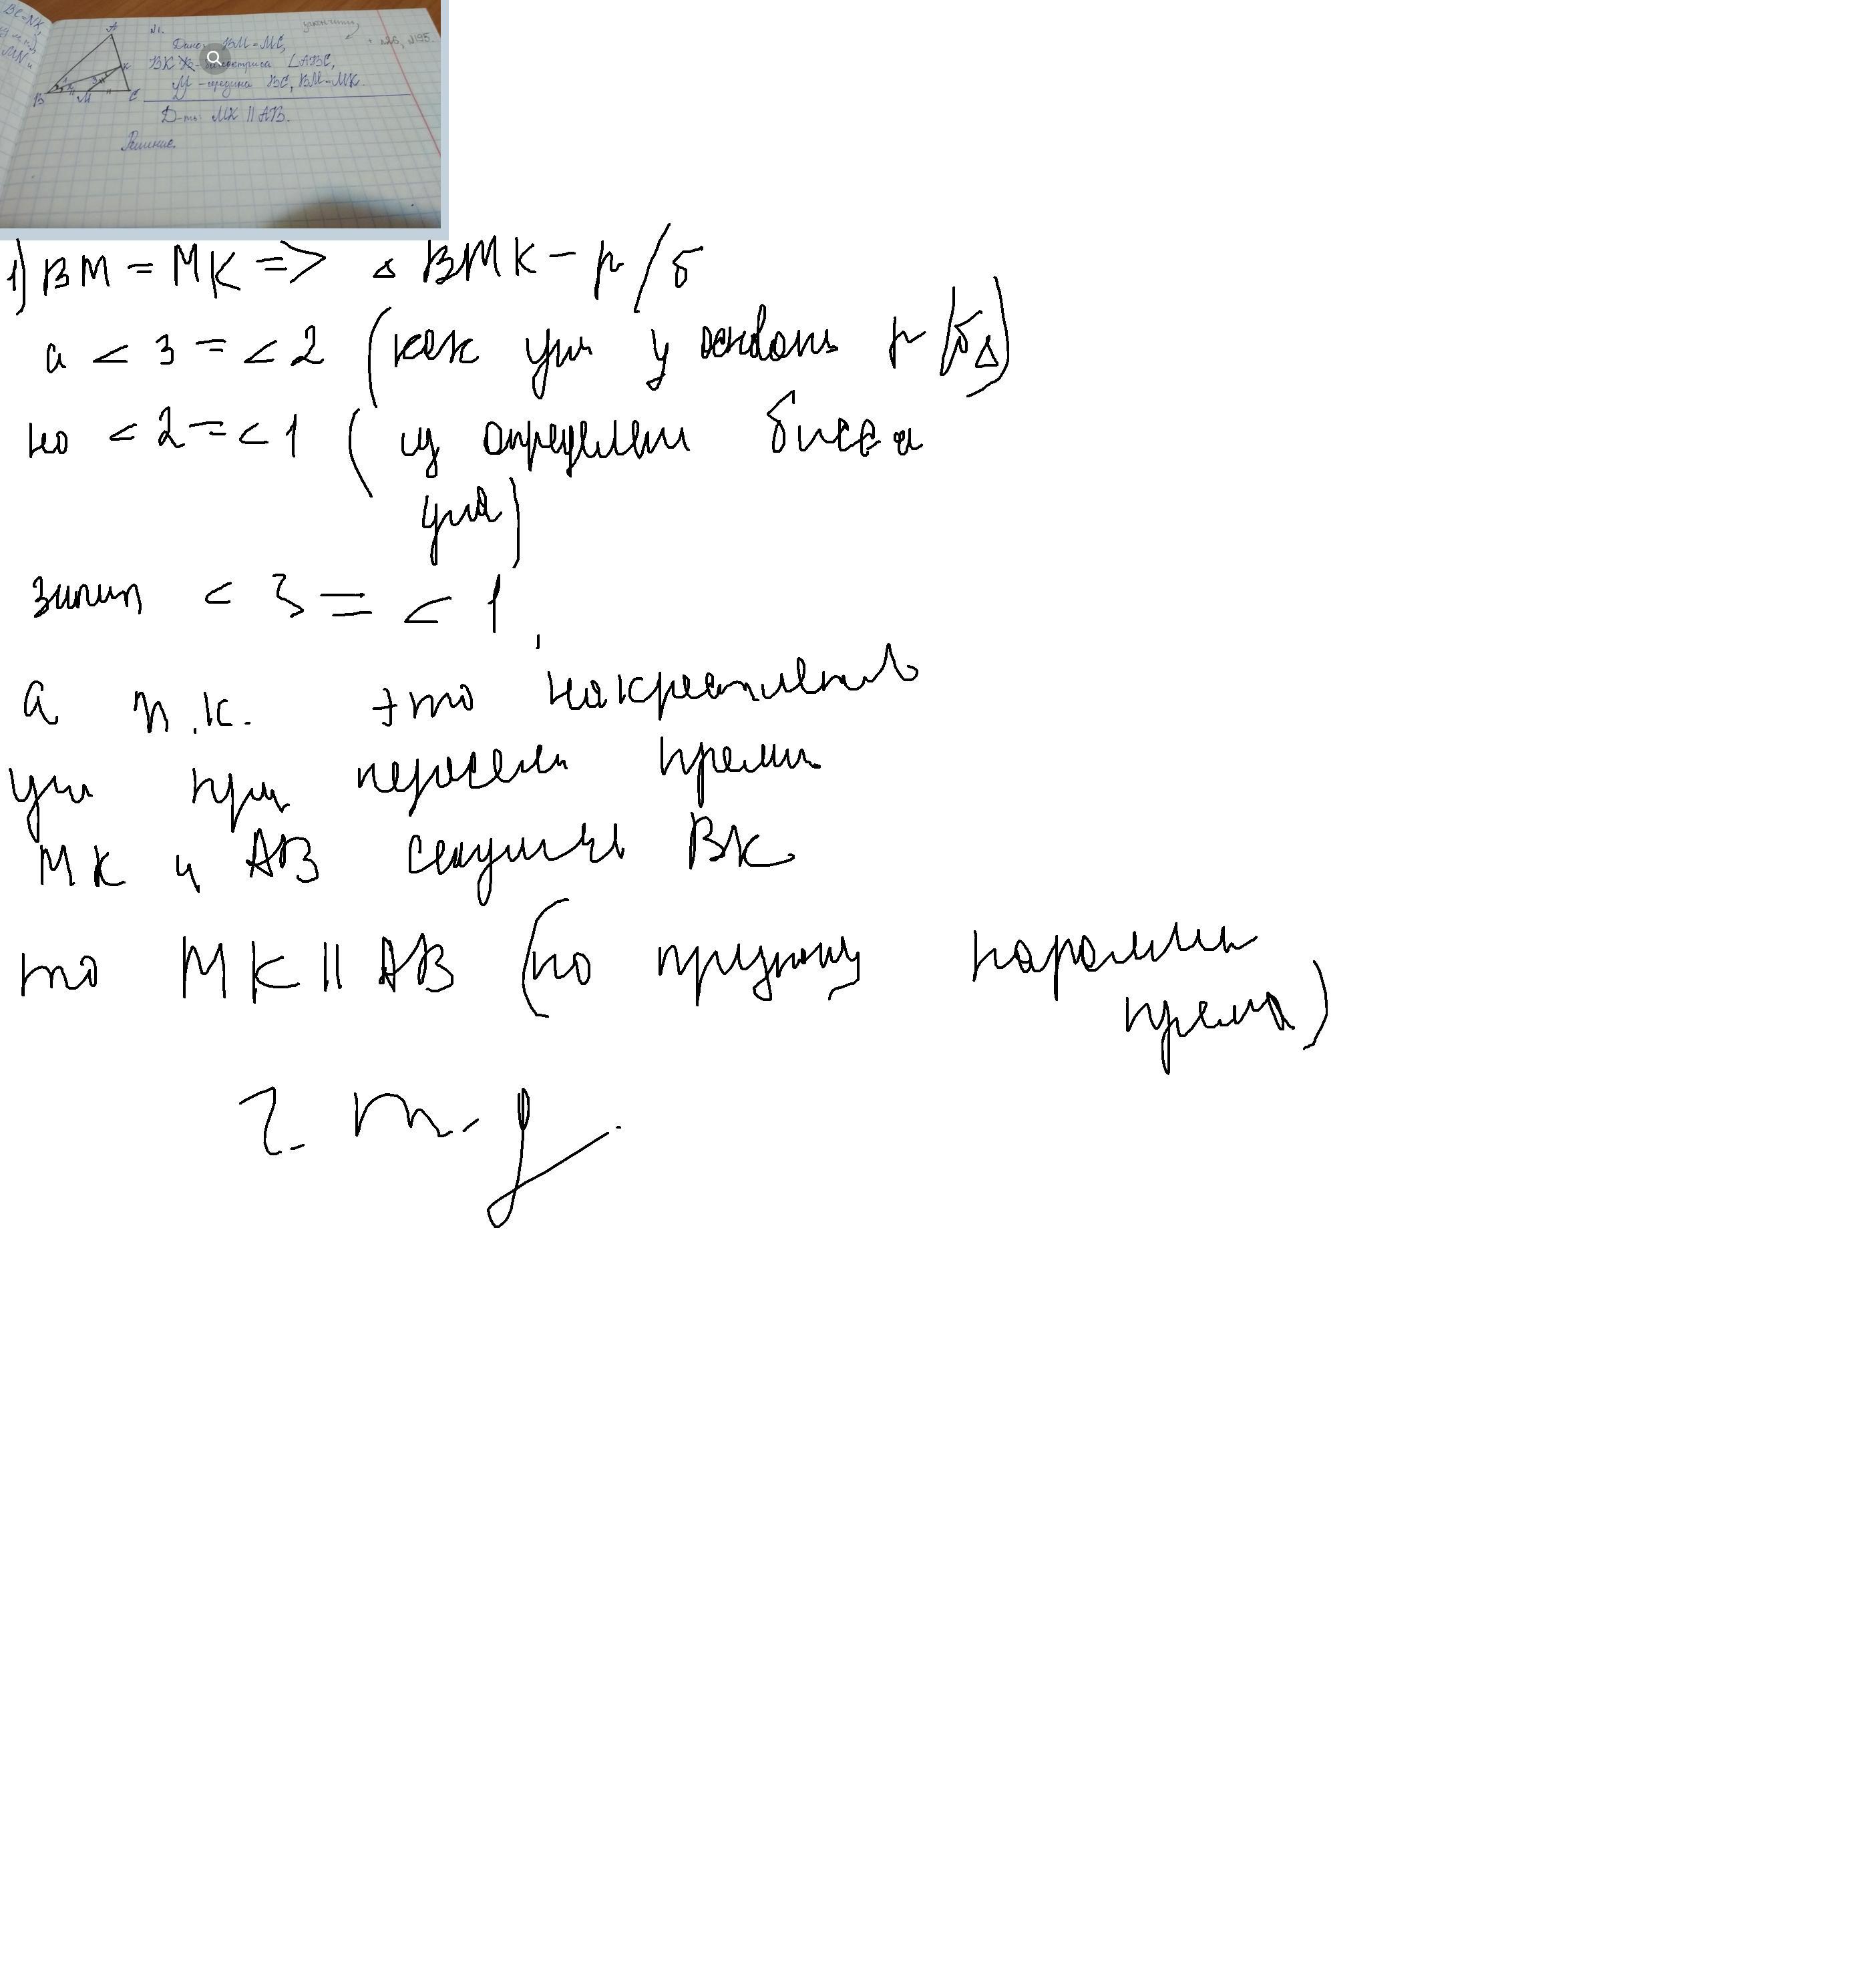 BC=NK,
N1.
Дано: BM=MC,
BK - биссектриса ∠ABC,
M - середина BC, BM=MK.
Д-ть: MK || AB.
Решение.
A
K
B
M
C
1) BM = MK => △ BMK - р/б
а < 3 = < 2 (как угл у основань р/б △)
но < 2 = < 1 (из определен бисса
угла)
значит < 3 = < 1,
а т.к. это накрестлежащ
угл при пересечен прямы
MK и AB секущей BK
то MK || AB (по признаку паралле
прямы)
ч. т. д.